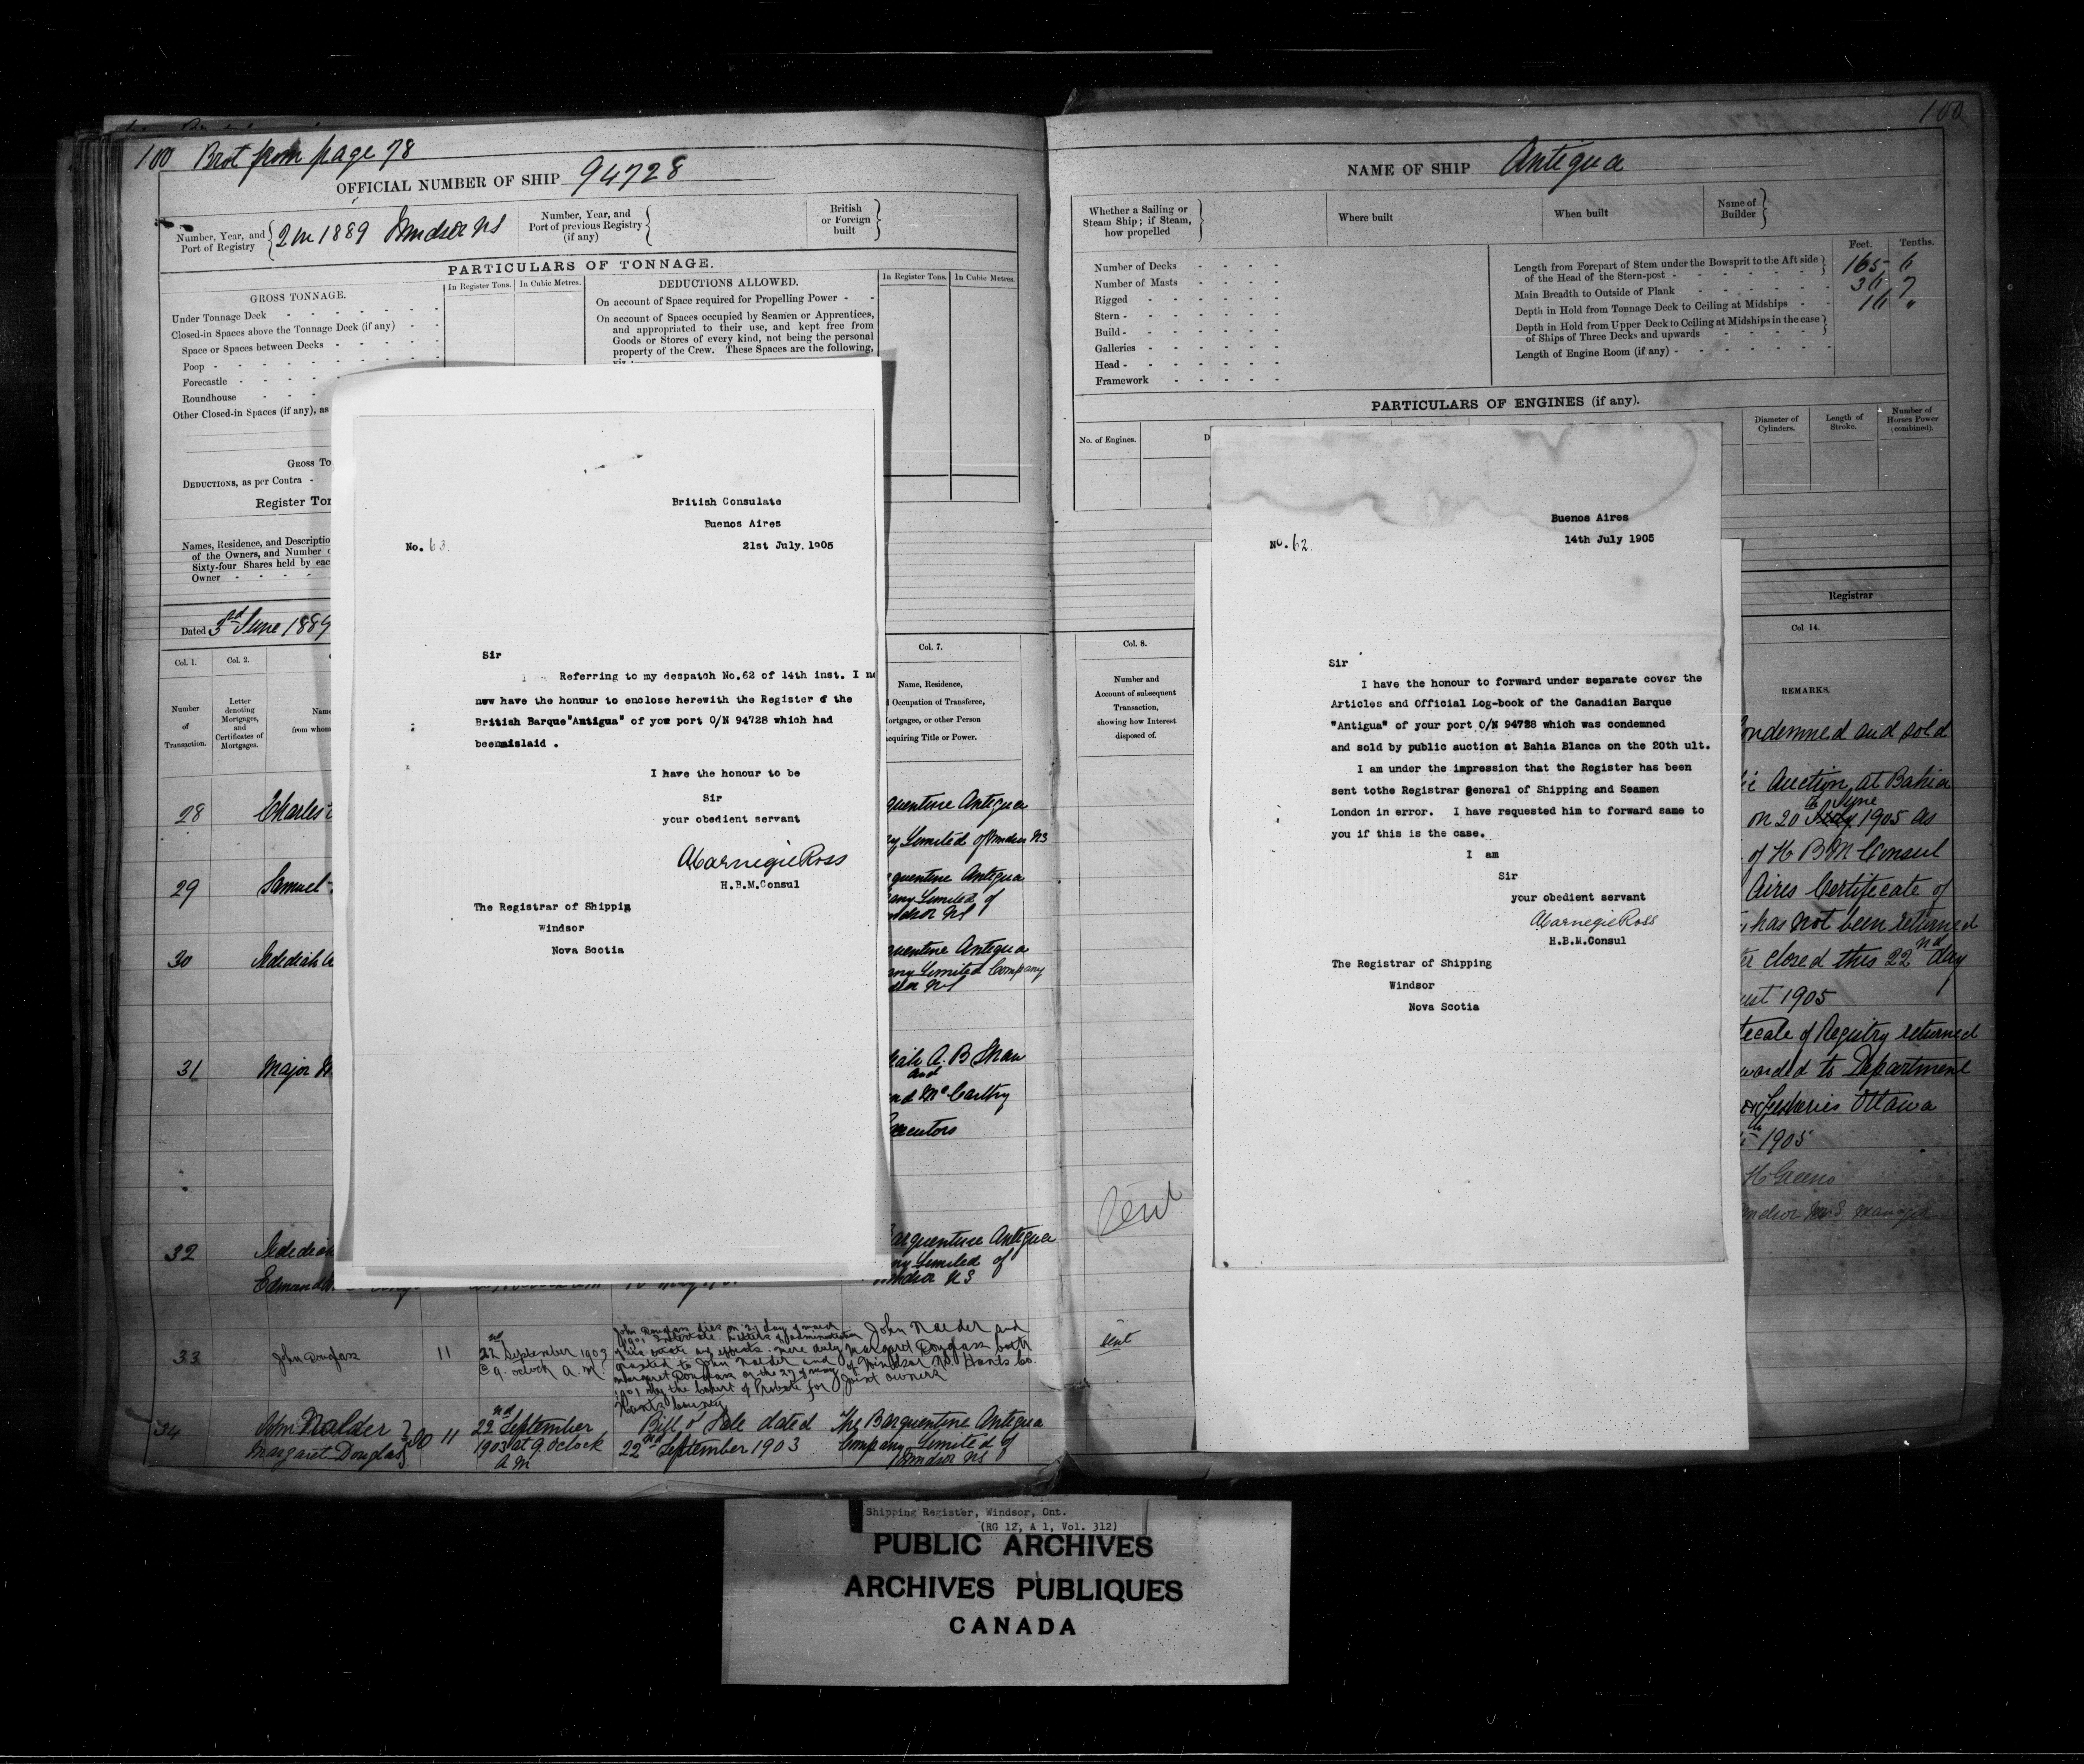 100 Brot from page 78
OFFICIAL NUMBER OF SHIP 94728
Number, Year, and Port of Registry
2 in 1889 Windsor NS
Number, Year, and Port of previous Registry (if any)
British or Foreign built
PARTICULARS OF TONNAGE.
GROSS TONNAGE.
In Register Tons.
In Cubic Metres.
DEDUCTIONS ALLOWED.
In Register Tons.
In Cubic Metres.
Under Tonnage Deck
Closed-in Spaces above the Tonnage Deck (if any)
Space or Spaces between Decks
Poop
Forecastle
Roundhouse
Other Closed-in Spaces (if any), as
On account of Space required for Propelling Power
On account of Spaces occupied by Seamen or Apprentices,
and appropriated to their use, and kept free from
Goods or Stores of every kind, not being the personal
property of the Crew. These Spaces are the following,
GROSS TO
DEDUCTIONS, as per Contra
Register Ton
Names, Residence, and Descriptio
of the Owners, and Number o
Sixty-four Shares held by eac
Owner
Dated 3rd June 1889
Col. 1.
Col. 2.
Number
of
Transaction.
Letter
denoting
Mortgages,
and
Certificates of
Mortgages.
Name
from whom
28
Charles
29
Samuel
30
Jedediah
31
Major
32
Jedediah
Edmund
British Consulate
Buenos Aires
No. 63.
21st July. 1905
Sir
Referring to my despatch No.62 of 14th inst. I no
now have the honour to enclose herewith the Register of the
British Barque"Antigua" of your port O/N 94728 which had
beenmislaid .
I have the honour to be
Sir
your obedient servant
A Carnegie Ross
H.B.M.Consul
The Registrar of Shippig
Windsor
Nova Scotia
Col. 7.
Name, Residence,
Occupation of Transferee,
ortgagee, or other Person
cquiring Title or Power.
quentine Antigua
y Limited of Windsor NS
quentine Antigua
any Limited of
ndsor NS
quentine Antigua
any Limited Company
dsor NS
iah A. B Shaw
and
nd McCarthy
xecutors
arquentine Antigua
ny Limited of
indsor NS
33
John Douglass
11
22nd September 1903
@ 9. oclock A.M.
John Douglass died on 27 day of march
1901 Intestate. Letters of administration
of his estate and effects. were duly
granted to John Nalder and
margaret Douglass on the 27 of may
1901 by the Court of Probate for
Hants County
John Nalder and
Margaret Douglass both
of Windsor NS. Hants Co.
Joint owners
34
John Nalder
Margaret Douglass
30 11
22nd September
1903 at 9. oclock
A M
Bill of Sale dated
22nd September 1903
The Barquentine Antigua
Company Limited of
Windsor NS
100
NAME OF SHIP Antigua
Whether a Sailing or
Steam Ship; if Steam,
how propelled
Where built
When built
Name of
Builder
Number of Decks
Number of Masts
Rigged
Stern
Build
Galleries
Head
Framework
Feet. Tenths.
Length from Forepart of Stem under the Bowsprit to the Aft side
of the Head of the Stern-post
165 6
Main Breadth to Outside of Plank
36 7
Depth in Hold from Tonnage Deck to Ceiling at Midships
Depth in Hold from Upper Deck to Ceiling at Midships in the case
of Ships of Three Decks and upwards
Length of Engine Room (if any)
PARTICULARS OF ENGINES (if any).
No. of Engines.
D
Diameter of
Cylinders.
Length of
Stroke.
Number of
Horses Power
(combined).
Registrar
Col. 8.
Number and
Account of subsequent
Transaction,
showing how Interest
disposed of.
Sent
sent
Buenos Aires
No. 62.
14th July 1905
Sir
I have the honour to forward under separate cover the
Articles and Official Log-book of the Canadian Barque
"Antigua" of your port O/N 94728 which was condemned
and sold by public auction at Bahia Blanca on the 20th ult.
I am under the impression that the Register has been
sent tothe Registrar General of Shipping and Seamen
London in error. I have requested him to forward same to
you if this is the case.
I am
Sir
your obedient servant
A Carnegie Ross
H.B.M.Consul
The Registrar of Shipping
Windsor
Nova Scotia
Col 14.
REMARKS.
ondemned and sold
ic Auction at Bahia
on 20th June July 1905 as
of H B M Consul
Aires Certificate of
has not been returned
closed this 22nd day
ust 1905
icate of Registry returned
warded to Department
Fisheries Ottawa
1905
Shipping Register, Windsor, Ont.
(RG 12, A 1, Vol. 312)
PUBLIC ARCHIVES
ARCHIVES PUBLIQUES
CANADA